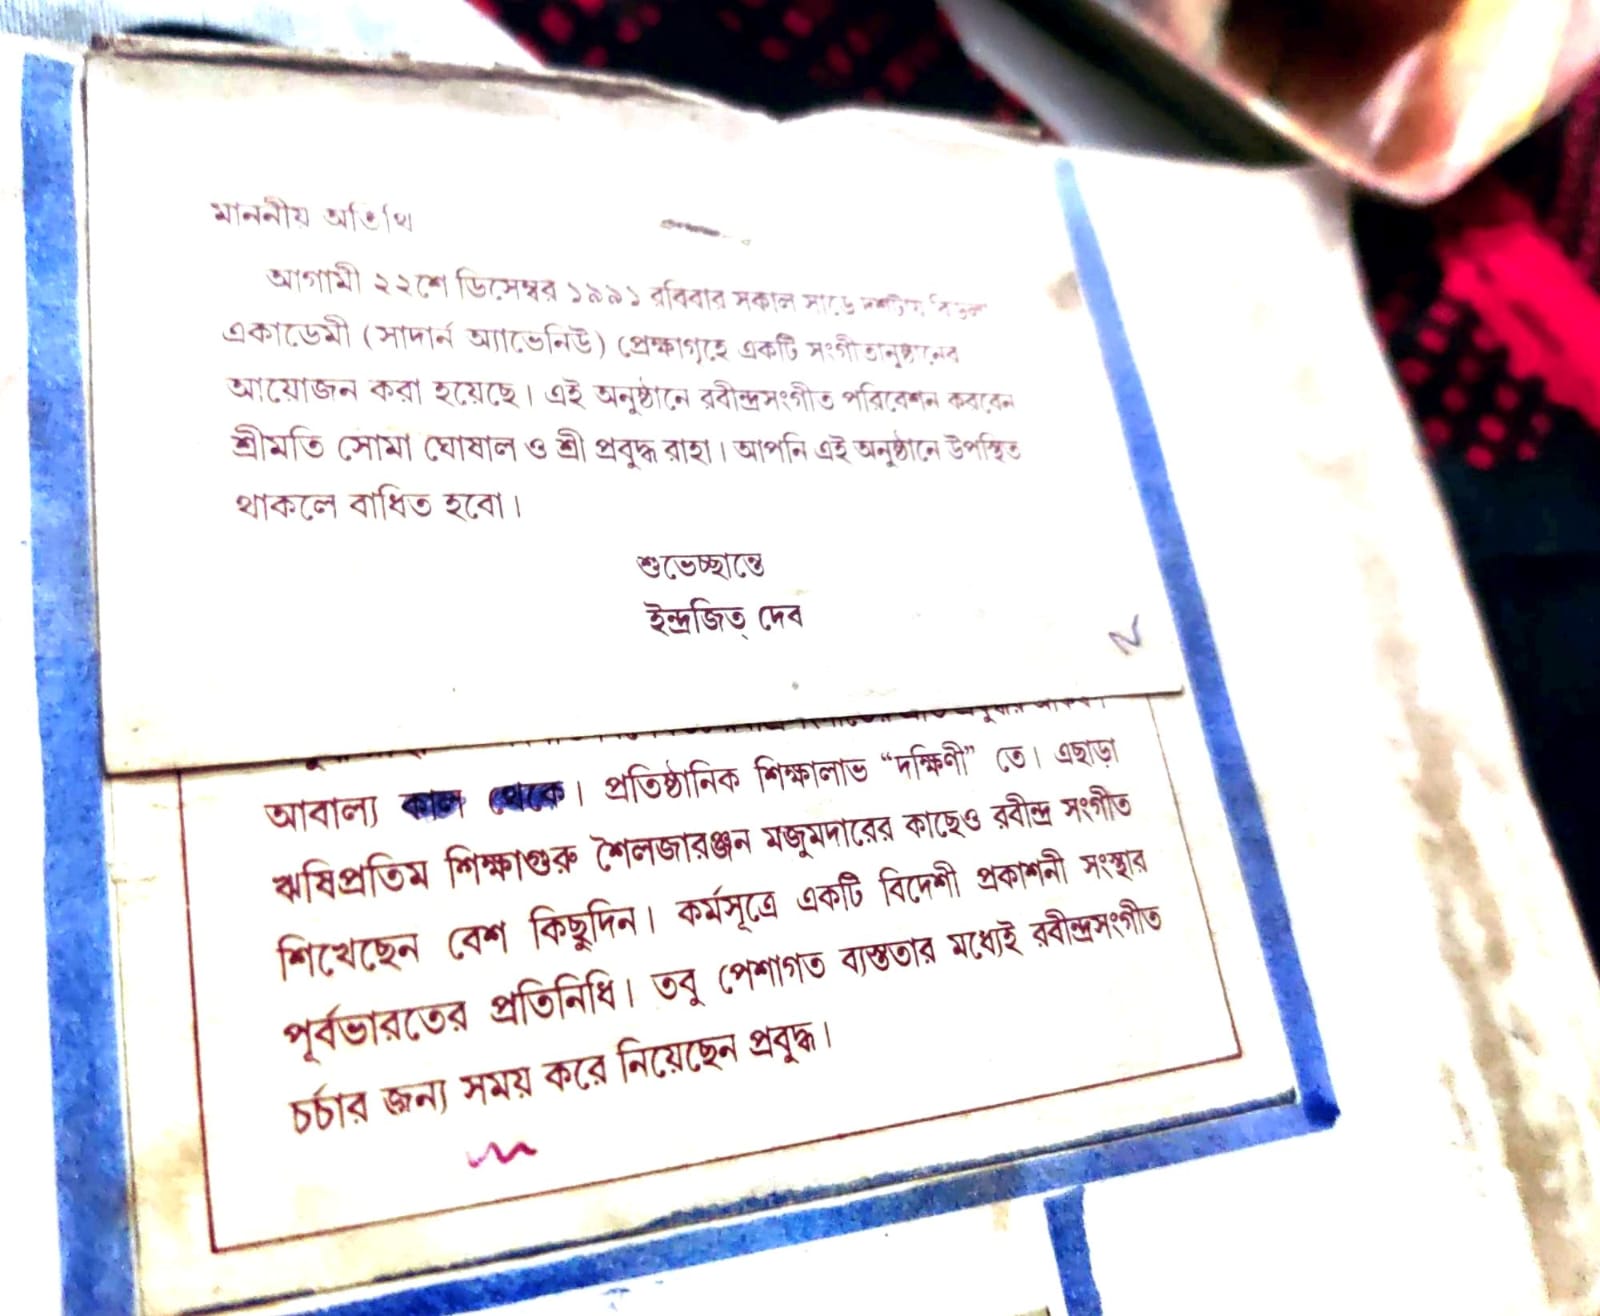 মাননীয় অতিথি
আগামী ২২শে ডিসেম্বর ১৯৯১ রবিবার সকাল সাড়ে দশটায় বিড়লা
একাডেমী (সাদার্ন অ্যাভেনিউ) প্রেক্ষাগৃহে একটি সংগীতানুষ্ঠানের
আয়োজন করা হয়েছে। এই অনুষ্ঠানে রবীন্দ্রসংগীত পরিবেশন করবেন
শ্রীমতি সোমা ঘোষাল ও শ্রী প্রবুদ্ধ রাহা। আপনি এই অনুষ্ঠানে উপস্থিত
থাকলে বাধিত হবো।
শুভেচ্ছান্তে
ইন্দ্রজিত্ দেব
আবাল্য কাল থেকে। প্রতিষ্ঠানিক শিক্ষালাভ “দক্ষিণী” তে। এছাড়া
ঋষিপ্রতিম শিক্ষাগুরু শৈলজারঞ্জন মজুমদারের কাছেও রবীন্দ্র সংগীত
শিখেছেন বেশ কিছুদিন। কর্মসূত্রে একটি বিদেশী প্রকাশনী সংস্থার
পূর্বভারতের প্রতিনিধি। তবু পেশাগত ব্যস্ততার মধ্যেই রবীন্দ্রসংগীত
চর্চার জন্য সময় করে নিয়েছেন প্রবুদ্ধ।